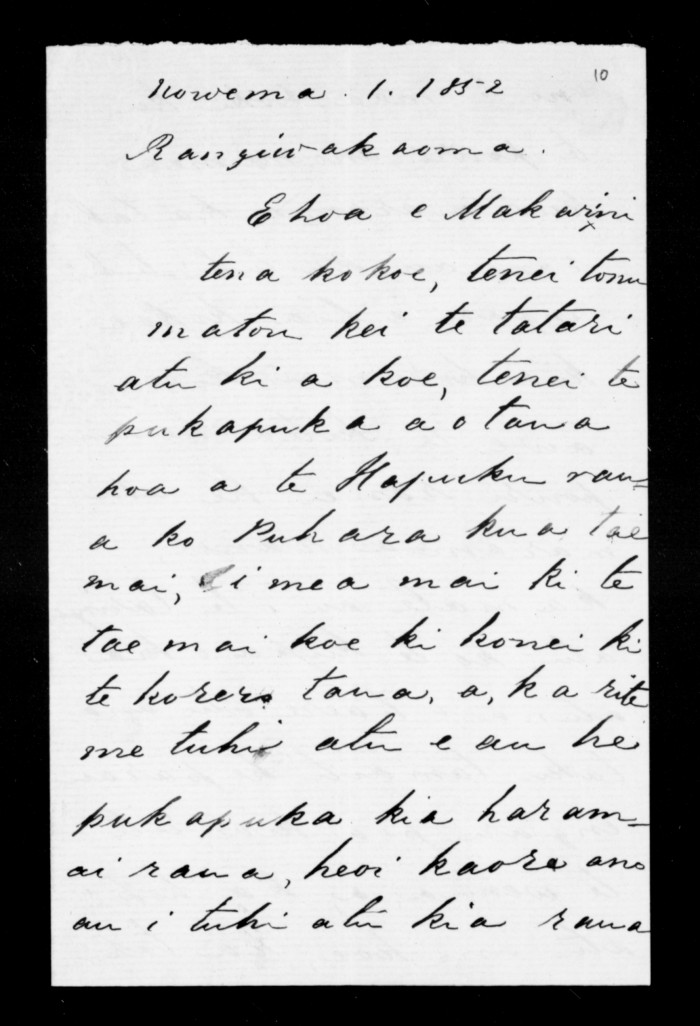 10
Nowema. 1. 1852
Rangiwakaoma.
Ehoa e Makarini
tena kokoe, tenei tonu
matou kei te tatari
atu ki a koe, tenei te
pukapuka a o taua
hoa a te Hapuku rau-
a ko Puhara kua tae
mai, i mea mai ki te
tae mai koe ki konei ki
te korero taua, a, ka rite
me tuhi atu e au he
pukapuka kia haram-
ai raua, heoi kaore ano
au i tuhi atu kia raua